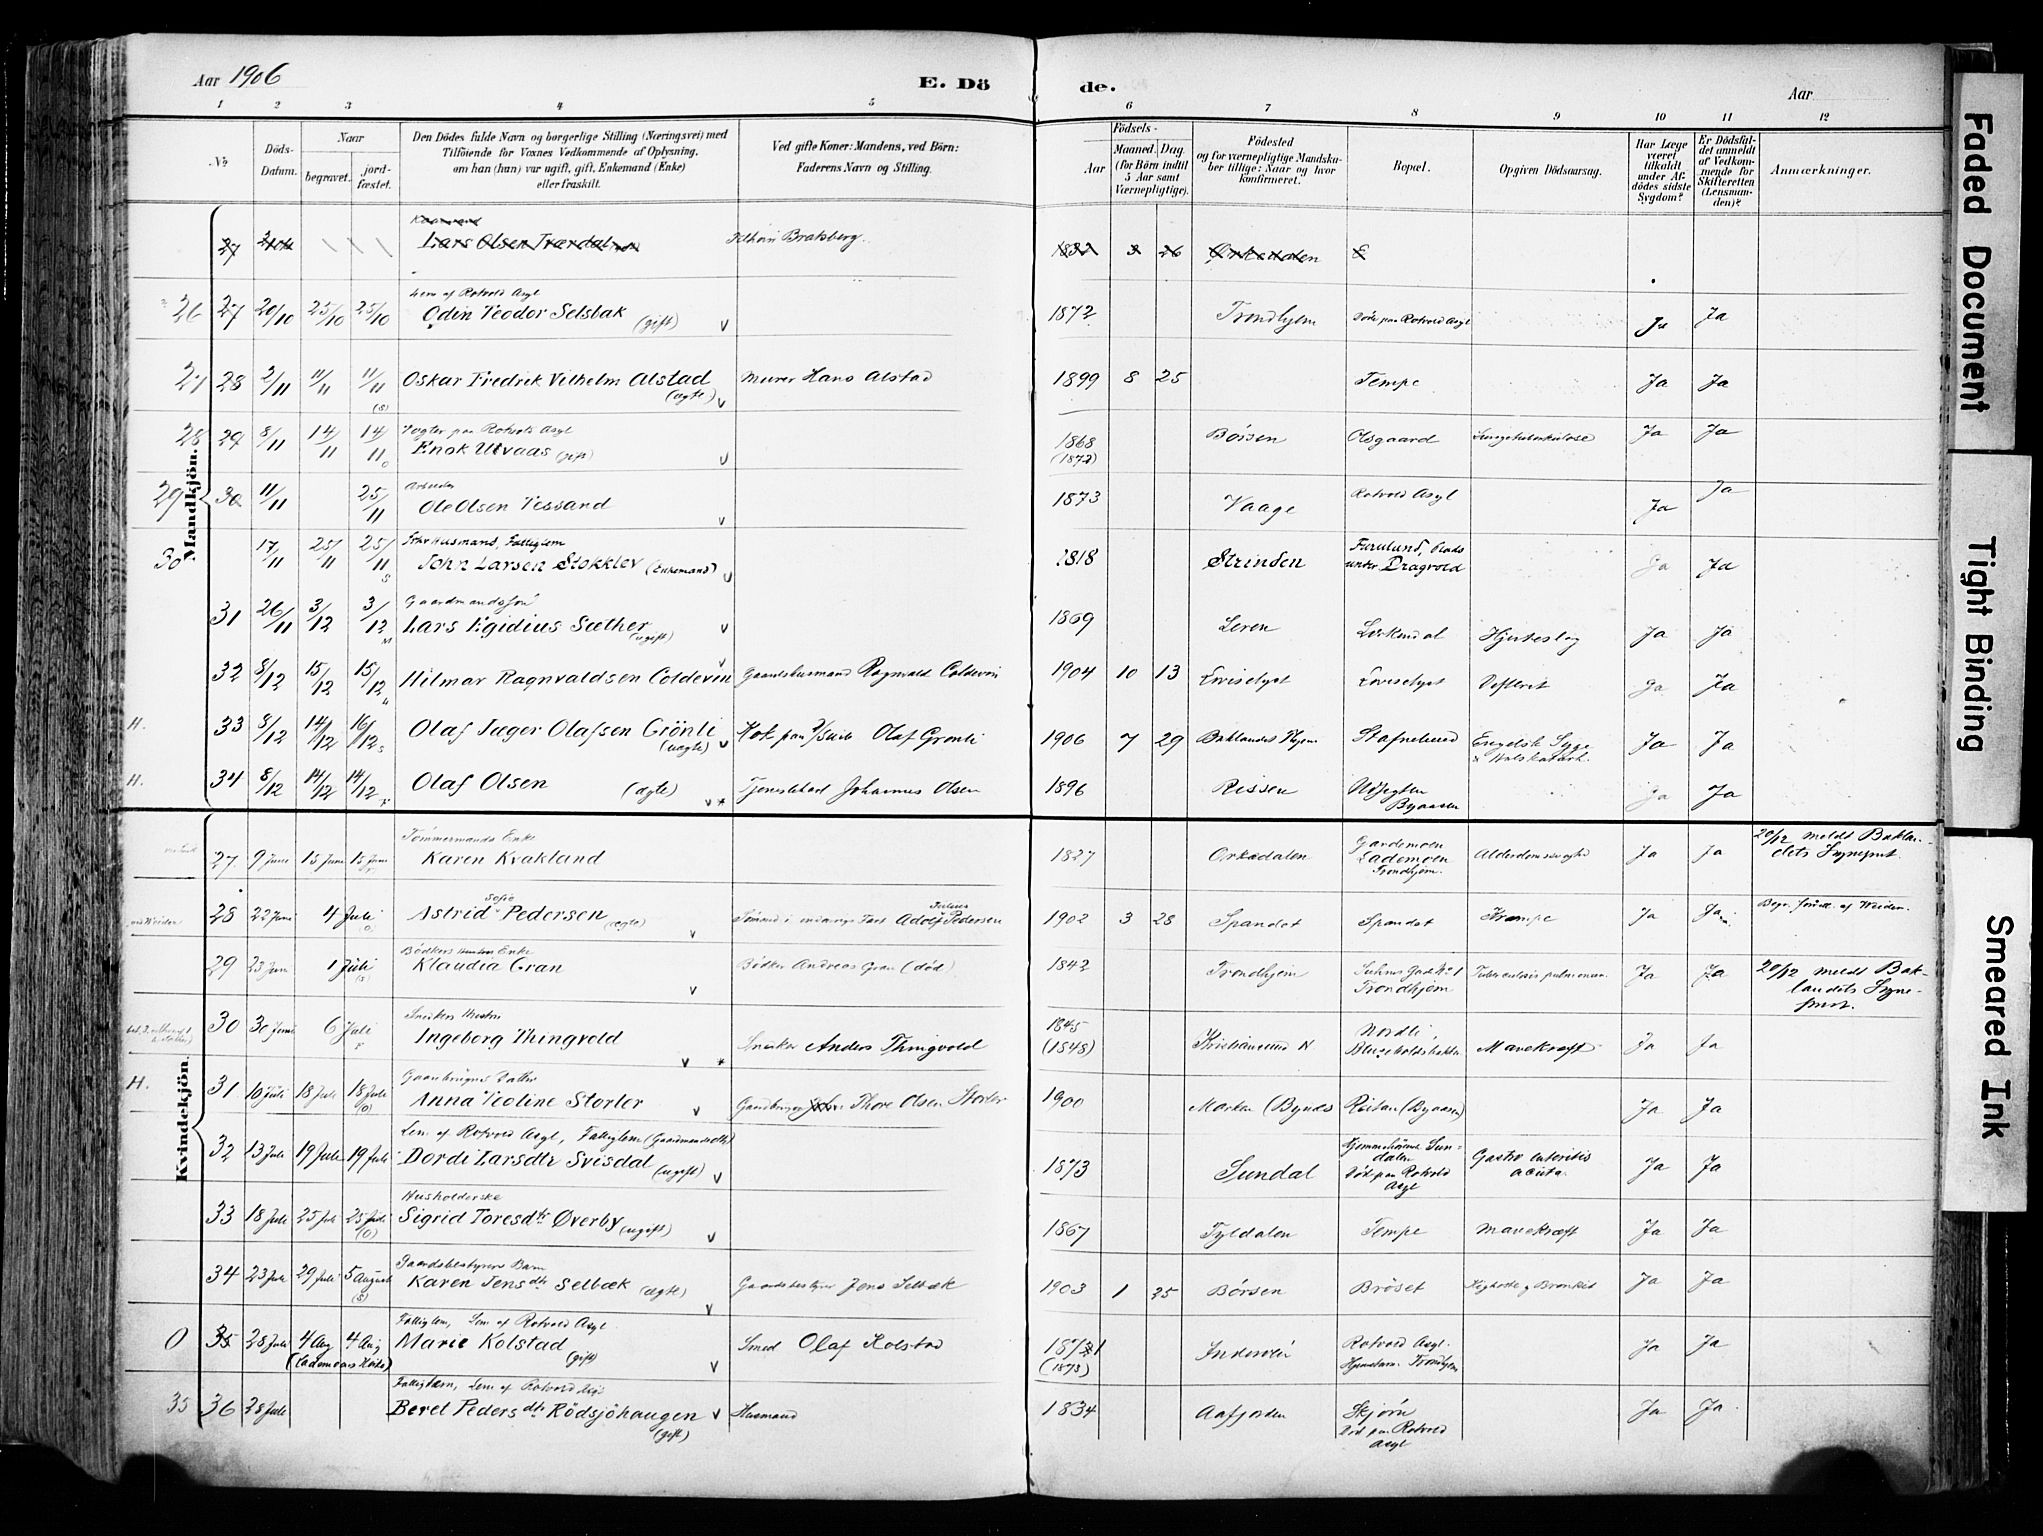 Aar 1906
E. Dö de.
Aar
1 2 3 4 5 6 7 8 9 10 11 12
No
Döds-Datum.
Naar
begravet.
jord-fæstet.
Den Dödes fulde Navn og borgerlige Stilling (Næringsvei) med
Tilföiende for Voxnes Vedkommende af Oplysning,
om han (hun) var ugift, gift, Enkemand (Enke)
eller fraskilt.
Ved gifte Koner: Mandens, ved Börn:
Faderens Navn og Stilling.
Födsels-
Aar
Maaned. Dag.
(for Börn indtil
5 Aar samt
Værnepligtige).
Födested
og for værnepligtige Mandska-
ber tillige: Naar og hvor
konfirmeret.
Bopæl.
Opgiven Dödsaarsag.
Har Læge
været
tilkaldt
under Af-
dödes sidste
Sygdom?
Er Dödsfal-
det anmeldt
af Vedkom-
mende for
Skifteretten
(Lensman-
den)?
Anmærkninger.
Mandkjön.
27 Lars Olsen Trærdal Bratsberg 1832 3 26 Orkedalen
Lem af Rotvold Asyl
26 27 20/10 25/10 25/10 Odin Teodor Selsbak (gift) v 1872 Trondhjem Döde paa Rotvold Asyl Ja Ja
27 28 2/11 11/11 11/11 (S) Oskar Fredrik Vilhelm Alstad (ægte) v Murer Hans Alstad 1899 8 25 Tempe Ja Ja
Vogter paa Rotvolds Asyl
28 29 8/11 14/11 14/11 O Enok Utvaas (gift) v 1868 (1872) Börsen Olsgaard Lungetuberkulose Ja Ja
Arbeider
29 30 11/11 25/11 Ole Olsen Tessand v 1873 Vaage Rotvold Asyl Ja Ja
Fattiglem
30 17/11 25/11 25/11 S John Larsen Stokklev (Enkemand) v 1818 Strinden Furulund, Plads under Dragvold Ja Ja
Gaardmandssön
31 26/11 3/12 3/12 M Lars Egidius Sæther (ugift) v 1869 Leren Lerkendal Hjerteslag Ja Ja
32 8/12 15/12 15/12 Hilmar Ragnvaldsen Coldevin v Gaardshusmand Ragnvald Coldevin 1904 10 13 Loviselyst Loviselyst Ja Ja
H. 33 8/12 14/12 16/12 S Olaf Jager Olafsen Grönli (uægte) v Kok paa D/Skib Olaf Grönli 1906 7 29 Baklandets Hjem Stafnelund Engelsk Syge & Halskatarh. Ja Ja
H. 34 8/12 14/12 14/12 F Olaf Olsen (ægte) v * Tjenestekarl Johannes Olsen 1896 Rissen Byaasen Ja Ja
Kvindekjön.
Tömmermands Enke
27. 9 Juni 15 Juni 15 Juni Karen Kvakland 1827 Orkedalen Gardemoen Lademoen Trondhjem. Alderdomssvaghed Ja Ja 20/12 meldt Baklan-
dets Sogneprst.
28 22 Juni 4 Juli (O) Astrid Sofie Pedersen (ægte) v Julius Adolf Pedersen 1902 3 28 Spandet Spandet Krampe Ja Ja
Bödkers Enke
29 23 Juni 1 Juli (S) Klaudia Gran v Bödker Andreas Gran (död) 1842 Trondhjem Suhms Gade No 1 Trondhjem Tuberculosis pulmonum. Ja Ja 20/12 meldt Bak-
landets Sogne-
prst.
Snedkers Hustru
30 30 Juni 6 Juli F Ingeborg Thingvold v * Snedker Anders Thingvold 1845 (1848) Kristianssund N Nordli, Mavekræft Ja Ja
Gaardbrugers Datter
H. 31 10 Juli 18 Juli 18 Juli (O) Anna Teoline Storler v Gaardbruger Thore Olsen Storler 1900 Marken (Bynes) Roitan (Byaasen) Ja Ja
Lem af Rotvold Asyl, Fattiglem (Gaardmandsdtr)
32 13 Juli 19 Juli 19 Juli Dordi Larsdtr Svisdal (ugift) v 1873 Sundal Hjemmehörende Sun-
dalen Död paa Rotvold Asyl Gastro enteritis acuta. Ja Ja
Husholderske
33 18 Juli 25 Juli 25 Juli (O) Sigrid Toresdtr Øverby (ugift) v 1867 Tyldalen Tempe Mavekræft Ja Ja
Gaardsbestyrers Barn
34 23 Juli 29 Juli 5 August (S) Karen Jensdtr Selbæk (ægte) v Gaardsbestyrer Jens Selbæk 1903 1 25 Börsen Bröset Kighoste og Bronkit Ja Ja
Fattiglem, Lem af Rotvold Asyl.
0 35 28 Juli 4 Aug 4 Aug (Lademoens Kirke) Marie Kolstad (gift) v Smed Olaf Kolstad 1871 (1873) Inderöen Rotvold Asyl. Hjemstavn Trondhjem Ja Ja
Fattiglem, Lem af Rotvold Asyl
35 36 28 Juli Beret Pedersdtr Rödsjöhaugen v (gift) Husmand 1834 Aafjorden Skjörn Död paa Rotvold Asyl Ja Ja
Faded Document
Tight Binding
Smeared Ink